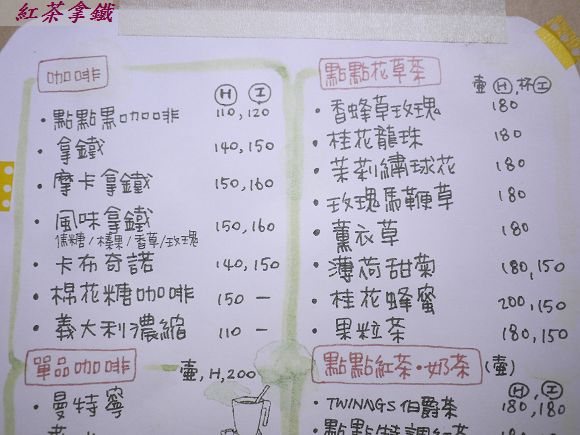 紅茶拿鐵
咖啡
H I
・點點黑咖啡 110,120
・拿鐵 140,150
・摩卡拿鐵 150,160
・風味拿鐵 150,160
焦糖/榛果/香草/玫瑰
・卡布奇諾 140,150
・棉花糖咖啡 150 —
・義大利濃縮 110 —
單品咖啡 壺,H,200
・曼特寧
點點花草茶 壺H,杯I
・香蜂草玫瑰 180
・桂花龍珠 180
・茉莉繡球花 180
・玫瑰馬鞭草 180
・薰衣草 180
・薄荷甜菊 180,150
・桂花蜂蜜 200,150
・果粒茶 180,150
點點紅茶・奶茶(壺)
H,I
・TWINAGS伯爵茶 180,180
・點點特調紅茶